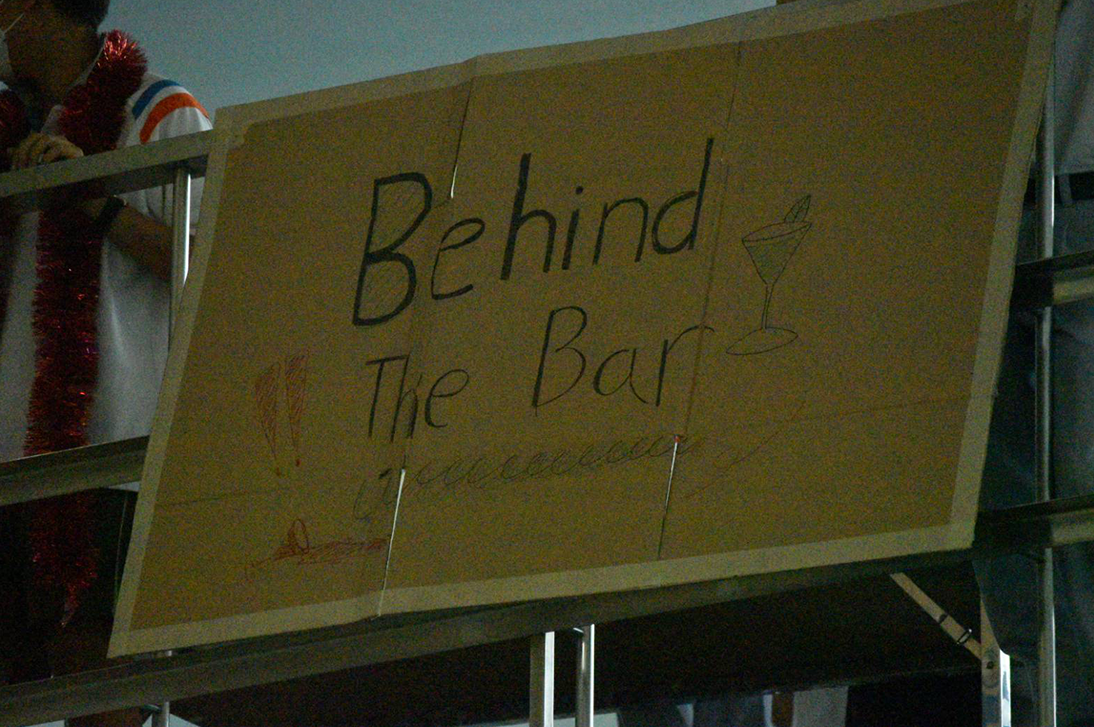 Behind
The Bar
!!